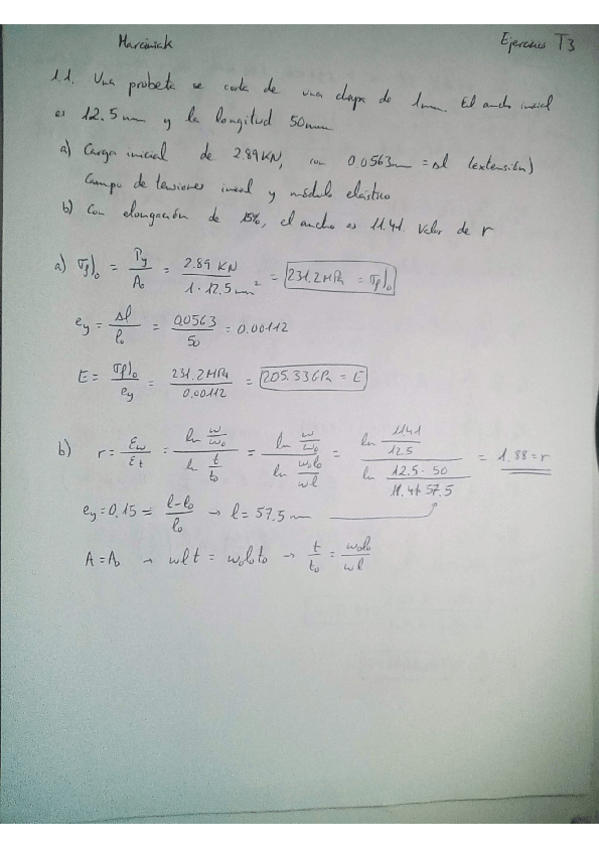 Marciniak
Ejercicios T3
1.1. Una probeta se corta de una chapa de 1mm. El ancho inicial
es 12.5mm y la longitud 50mm
a) Carga inicial de 2.89KN, con 0.0563mm = Δl (extensión)
Campo de tensiones inicial y módulo elástico
b) Con elongación de 15%, el ancho es 11.41. Valor de r
a) σf)₀ = Py/A₀ = 2.89 KN / 1·12.5mm² = 231.2MPa = σf)₀
ey = Δl/l₀ = 0.0563/50 = 0.00112
E = σf)₀/ey = 231.2MPa/0.00112 = 205.33GPa = E
b) r = εw/εt = ln w/w₀ / ln t/t₀ = ln w/w₀ / ln w₀l₀/wl = ln 11.41/12.5 / ln 12.5·50/11.41·57.5 = 1.88 = r
ey = 0.15 = l-l₀/l₀ → l = 57.5mm
A = A₀ → wlt = w₀l₀t₀ → t/t₀ = w₀l₀/wl